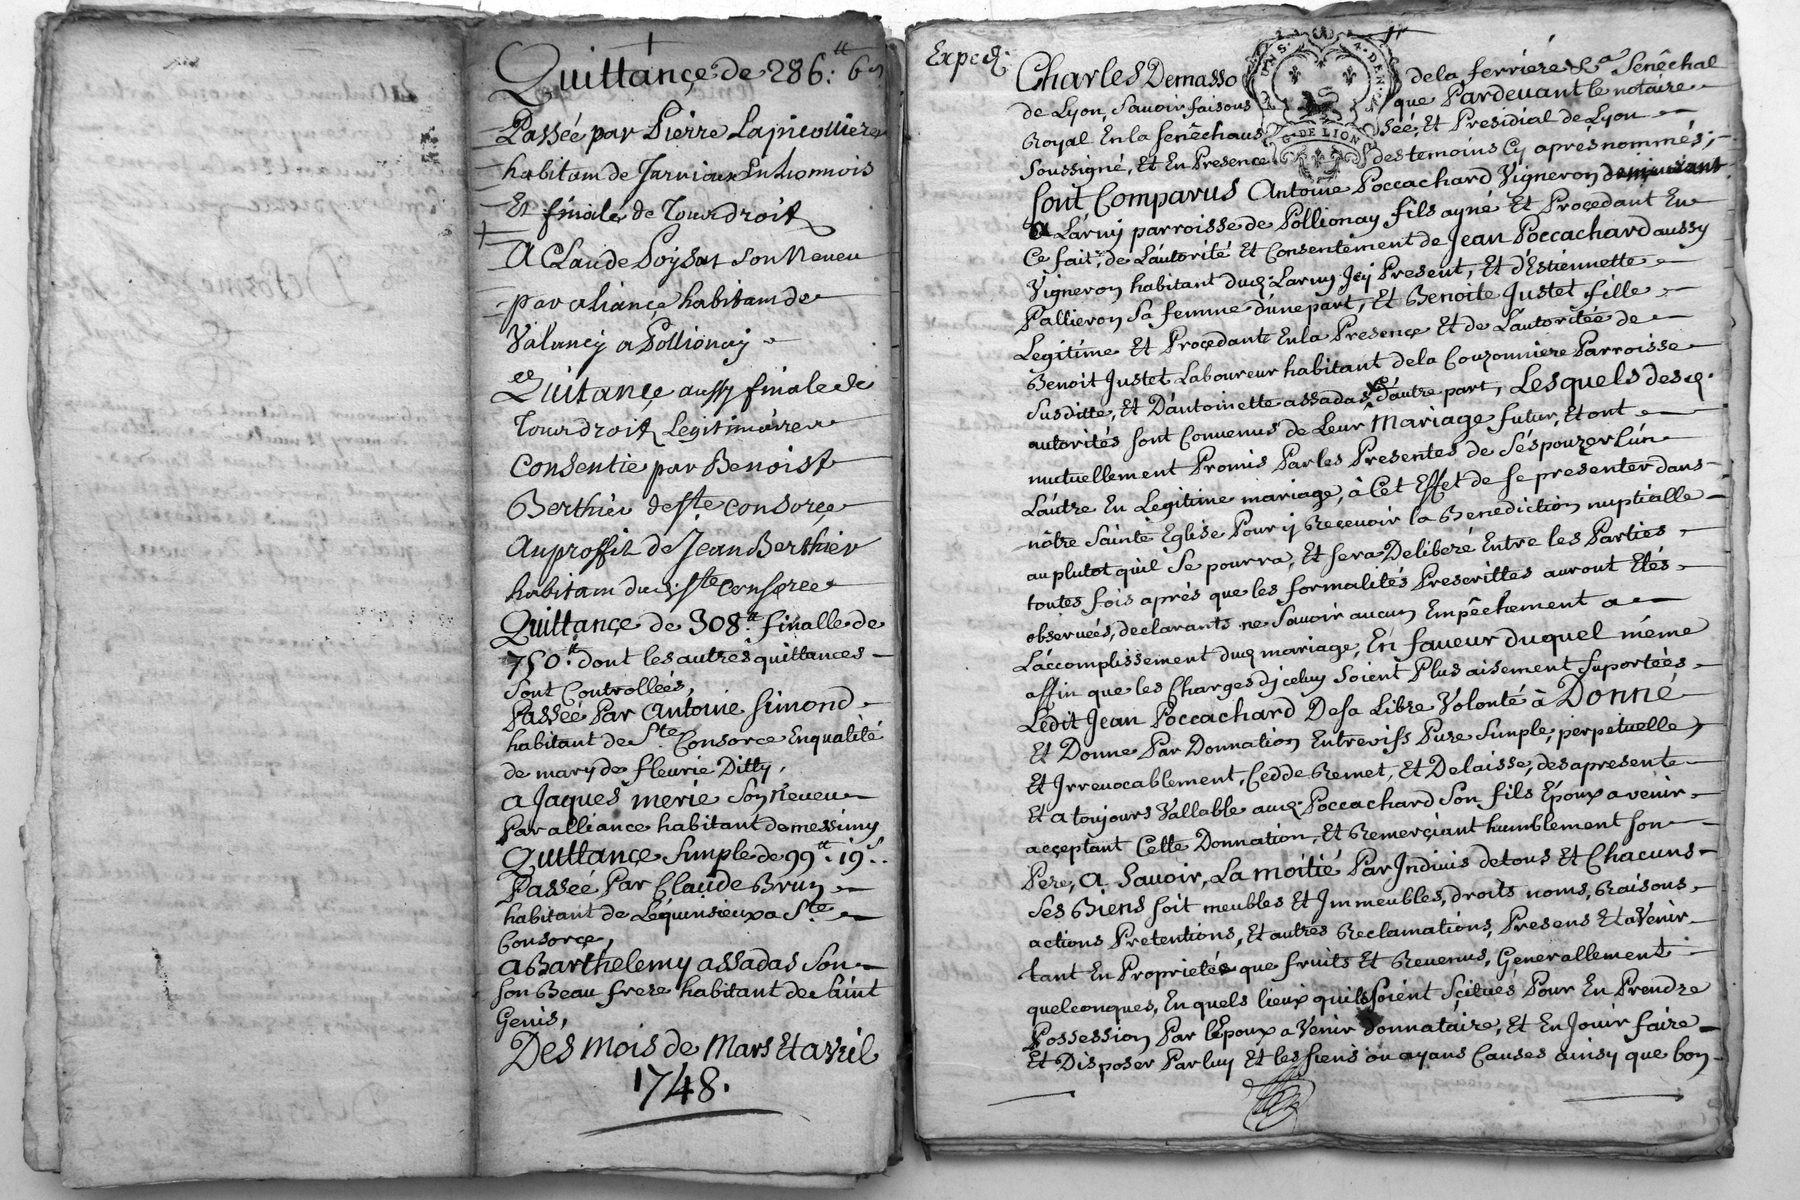 Quittançe de 286.tt 6s
Passée par Pierre Lapicottiere
habitam de Jarnioux En Lionnois
Et finale de Tour droit
A Claude Poysat son Neveu
par aliançe habitam de
Valancy a Pollionay
Quittançe aussy finale de
Tour droit Legitimaire
Consentie par Benoist
Berthier de Ste Consorçe
Au proffit de Jean Berthier
habitam dud. Ste Consorce
Quittançe de 308.tt finalle de
750.tt dont les autres quittances
sont Controllées,
Passée Par Antoine Simond
habitant de Ste Consorce En qualité
de mary de fleurie Ditty,
a Jaques merie son Neveu
Par alliance habitant de messimy
Quittançe Simple de 99.tt 19.s
Passée Par Claude Brun
habitant de Lequinsieux a Ste
Consorçe,
a Barthelemy assadas Son
son Beau frere habitant de Saint
Genis,
Des mois de Mars Et avril
1748.
Exped.
Charles Demasso de la ferriere &a Sénêchal
de Lyon, Savoir faisons que Pardevant le notaire
Royal En la Senêchaussée, Et Presidial de Lyon
Soussigné, Et En Presence des temoins Cy aprés nommés;
G. DE LION
Sont Comparus Antoine Poccachard Vigneron demeurant
a Larny parroisse de Pollionay fils ayné Et Proçedant En
Ce fait, de L'autorité Et Consentement de Jean Poccachard aussy
Vigneron habitant dud. Larny Jcy Present, Et d'Estiennette
Pallieron Sa femme d'une part, Et Benoite Justet fille
Legitime Et Proçedante En la Presençe Et de L'autoritée de
Benoit Justet Laboureur habitant de la Couzonniere Parroisse
Susditte, Et D'antoinette assadas d'autre part, Lesquels desd.
autorités sont Convenus de Leur Mariage futur, Et ont
mutuellement Promis Par les Presentes de S'épouzer L'un
L'autre En Legitime mariage, à Cet Effet de se presenter dans
nôtre Sainte Eglise Pour y Recevoir la Benediction nuptialle
au plutot qu'il Se pourra, Et sera Deliberé Entre les Parties
toutes fois aprés que les formalités Prescrittes auront Etés
observées, declarants ne Savoir aucun Empêchement a
L'accomplissement dud. mariage, En faveur duquel même
affin que les Charges d'jceluy Soient Plus aisement Suportées
Ledit Jean Poccachard De Sa Libre Volonté à Donné
Et Donne Par Donnation Entreviss Pure Simple, perpetuelle
Et Irrevocablement, Cedde Remet, Et Delaisse, des a presente
Et a toujours Vallable aud. Poccachard Son fils Epoux a venir
acçeptant Cette Donnation, Et Remerçiant humblement Son
Pere, a Savoir, La moitié Par Indivis de tous Et Chacuns
Ses Biens soit meubles Et Jmmeubles, droits noms, Raisons
actions Pretentions, Et autres Reclamations, Presens Et a Venir
tant En Proprietés que fruits Et Revenus, Generallement
quelconques, En quels lieux qu'ils Soient Sçitués Pour En Prendre
Possession Par L'Epoux a Venir Donnataire, Et En Jouir faire
Et Disposer Par luy Et les Siens ou ayans Causes ainsy que bon